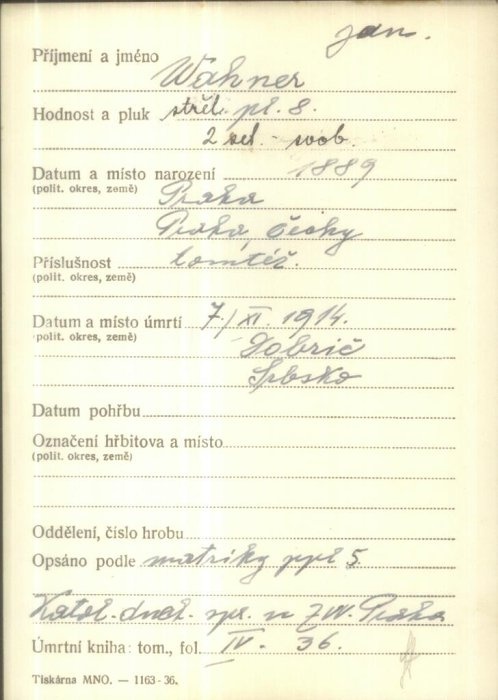 Jan.
Příjmení a jméno
Wahner
Hodnost a pluk střel. pl. 8.
2 set. - svob.
Datum a místo narození 1889
(polit. okres, země) Praha
Praha, Čechy
Příslušnost tamtéž.
(polit. okres, země)
Datum a místo úmrtí 7./XI. 1914.
(polit. okres, země) Dobrič
Srbsko
Datum pohřbu
Označení hřbitova a místo
(polit. okres, země)
Oddělení, číslo hrobu
Opsáno podle matriky ppl 5
Katol. duch. spr. u ZVV. Praha
Úmrtní kniha: tom., fol. IV. 36.
Tiskárna MNO. — 1163-36.